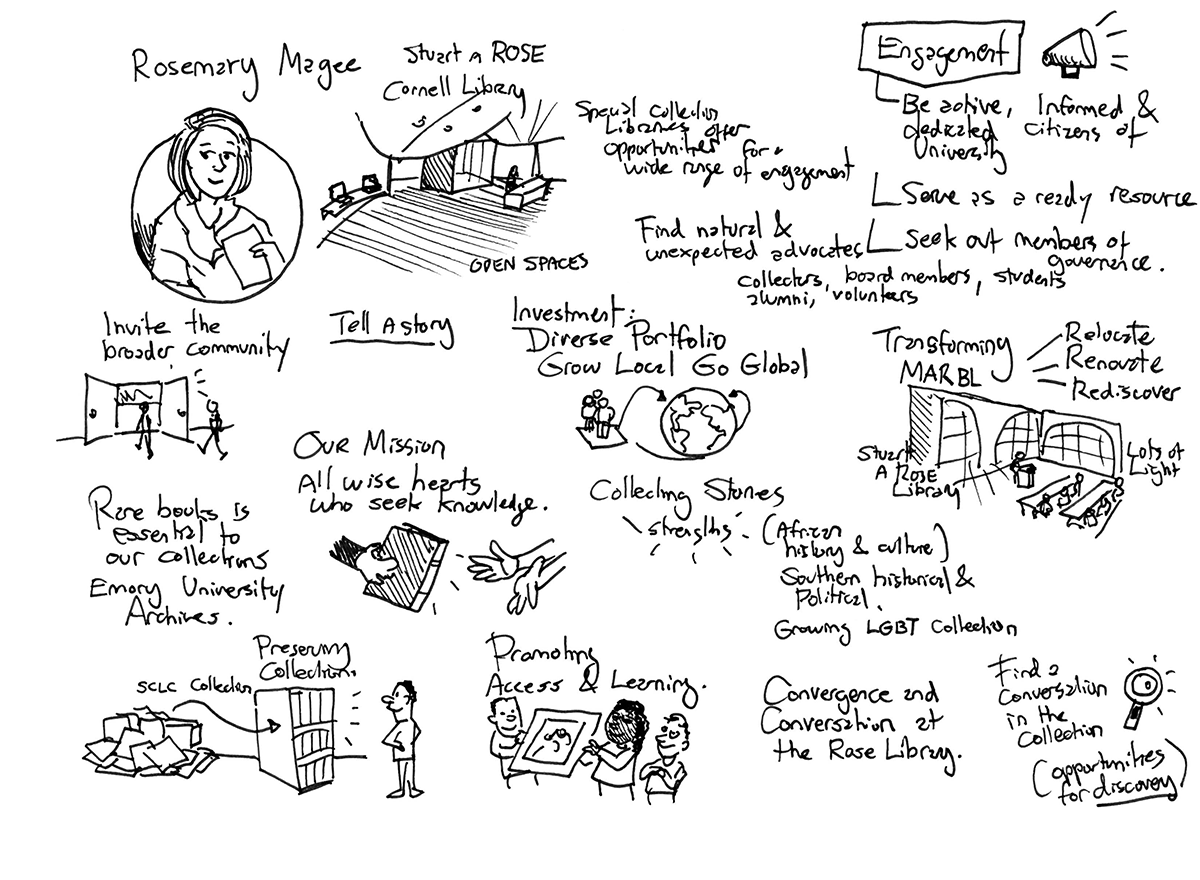 Rosemary Magee
Stuart A ROSE
Cornell Library
OPEN SPACES
Special Collection
Libraries offer
opportunities for a
wide range of engagement
Engagement
Be active, Informed &
dedicated citizens of
University
Serve as a ready resource
Seek out members of
governance.
Find natural &
unexpected advocates
collectors, board members, students
alumni, volunteers
Invite the
broader community
Tell A story
Investment:
Diverse Portfolio
Grow Local Go Global
Transforming
MARBL
Relocate
Renovate
Rediscover
Stuart
A ROSE
Library
Lots of
Light
Our Mission
All wise hearts
who seek knowledge.
Rare books is
essential to
our collections
Emory University
Archives.
Collecting Stories
strengths
(African
history & culture)
Southern historical &
Political.
Growing LGBT Collection
Preserving
Collections
SCLC Collection
Promoting
Access & Learning.
Convergence and
Conversation at
the Rose Library.
Find a
Conversation
in the
Collection
(opportunities
for discovery)